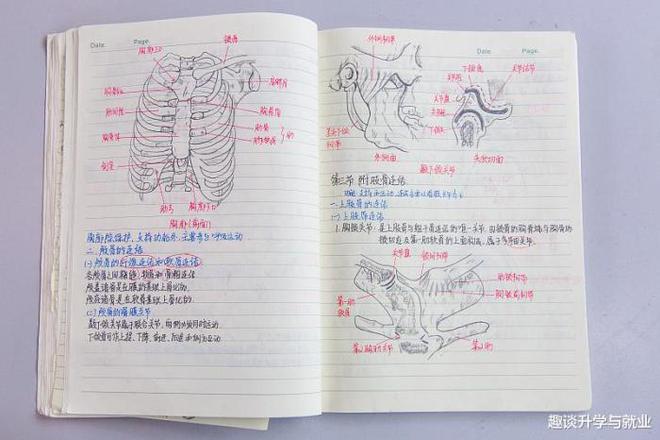 Date
Page
胸廓上口
锁骨
肩胛骨
胸骨柄
肋间隙
胸骨体
剑突
肋骨
肋软骨
肋弓
胸廓下口
胸廓(前面)
胸廓除保护、支持功能外,主要参与呼吸运动
二、颅骨的连结
(一)颅骨的纤维连结和软骨连结
各颅骨之间借缝、软骨和骨相连结
颅盖诸骨是在膜的基础上骨化的
颅底诸骨是在软骨基础上骨化的.
(二)颅骨的滑膜关节
颞下颌关节属于联合关节,两侧必须同时运动
下颌骨可作上提、下降、前进、后退和侧方运动
Date
Page
外侧韧带
下颌窝
关节结节
关节盘
关节囊
茎突下颌
韧带
下颌头
外侧面
矢状切面
颞下颌关节
第三节 附肢骨连结
一、上肢骨的连结
(一)上肢带连结
1.胸锁关节:是上肢骨与躯干骨连结的唯一关节,由锁骨的胸骨端与胸骨的
锁切迹及第一肋软骨的上面构成,属于多轴关节.
关节盘
锁间韧带
肋锁韧带
胸锁前韧带
第一肋
软骨
第2胸肋关节
第2肋
趣谈升学与就业